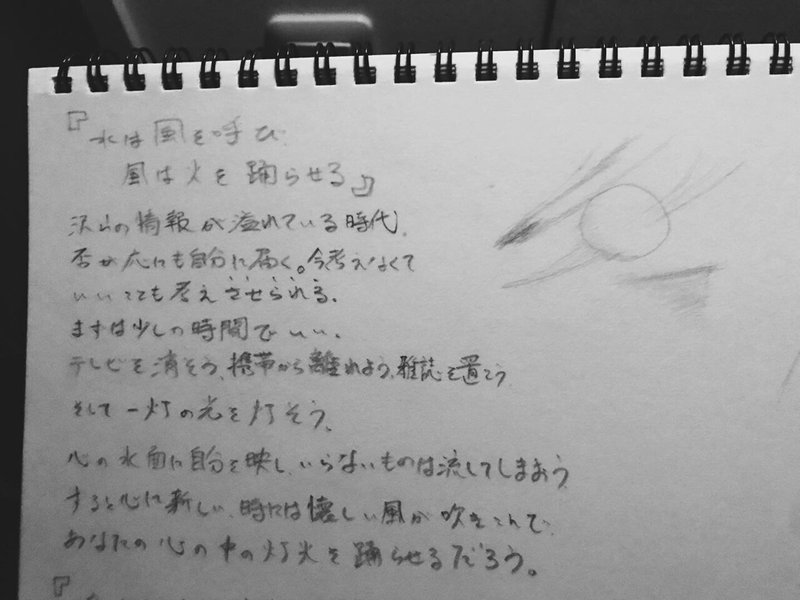 『水は風を呼び
風は火を踊らせる』
沢山の情報が溢れている時代、
否が応にも自分に届く。今考えなくて
いいことでも考えさせられる、
まずは少しの時間でいい、
テレビを消そう、携帯から離れよう、雑誌を置こう
そして一灯の光を灯そう、
心の水面に自分を映し、いらないものは流してしまおう
すると心に新しい、時には懐しい風が吹きこんで、
あなたの心の中の灯火を踊らせるだろう。
『